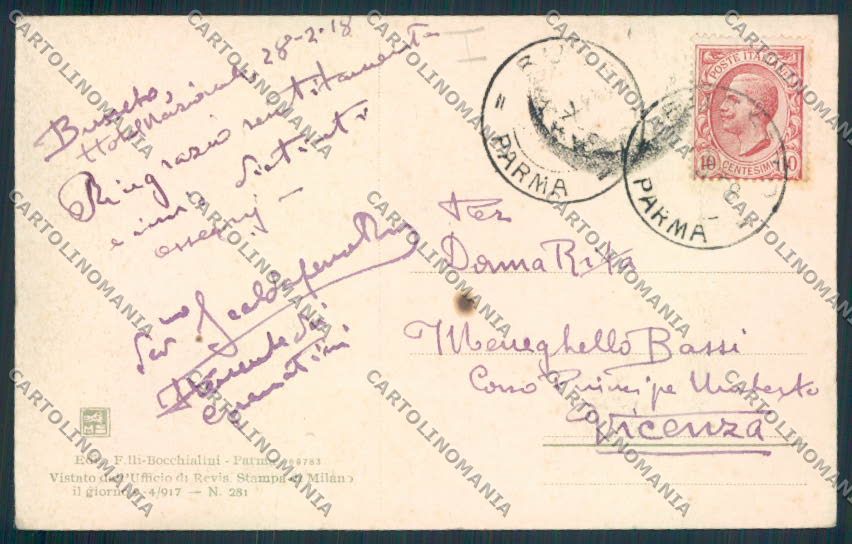 Busseto, 28-2-18
Hotel Nazionale
Ringrazio sentitamente
e invio distinti
ossequi
Per
Donna Rita
Meneghello Bassi
Corso Principe Umberto
Vicenza
POSTE ITALIANE
10 CENTESIMI 10
PARMA
PARMA
Edit. F.lli-Bocchialini - Parma
Vistato dall'Ufficio di Revis. Stampa di Milano
il giorno 4/917 - N. 281
CARTOLINOMANIA